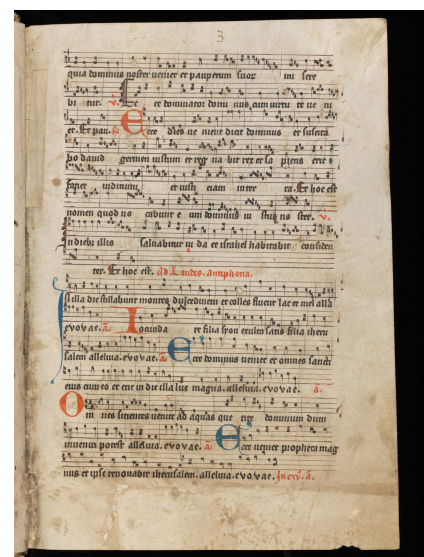 3
quia dominus noster veniet et pauperum suor um sere
bi tur. v. Ec ce dominator domi nus cum virtu te ve ni
et. Et pau. Ecce dies ve niunt dicit dominus et suscita
bo david germen iustum et reg na bit rex et sa piens erit &
faciet iudicium et iusti ciam in ter ra. Et hoc est
nomen quod vo cabunt e um dominus iu stus no ster. v.
In diebus illis salvabitur iu da et israhel habitabit confiden
ter. Et hoc est. ad Laudes. antiphona.
In illa die stillabunt montes dulcedinem et colles fluent lac et mel alla
evovae. a. Iocunda re filia syon exulta satis filia iheru
salem alleluia. evovae. a. Ecce dominus veniet et omnes sancti
eius cum eo et erit in die illa lux magna. alleluia. evovae. a.
Om nes sitientes venite ad aquas que rite dominum dum
inveniri potest alleluia. evovae. a. Ecce veniet propheta mag
nus et ipse renovabit iherusalem. alleluia. evovae.